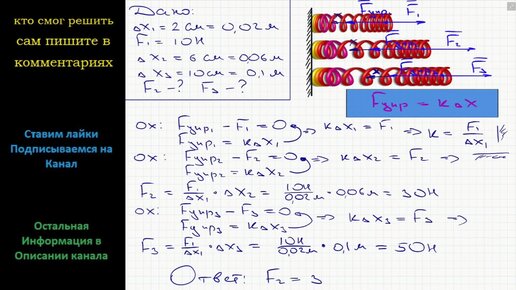 кто смог решить
сам пишите в
комментариях
Ставим лайки
Подписываемся на
Канал
Остальная
Информация в
Описании канала
Дано:
Δx₁ = 2 см = 0,02 м
F₁ = 10 Н
Δx₂ = 6 см = 0,06 м
Δx₃ = 10 см = 0,1 м
F₂ - ? F₃ - ?
Fупр₁ F₁
F₂
F₃
Fупр = kΔx
ox: Fупр₁ - F₁ = 0 => kΔx₁ = F₁ => k = F₁/Δx₁
Fупр₁ = kΔx₁
ox: Fупр₂ - F₂ = 0 => kΔx₂ = F₂ =>
Fупр₂ = kΔx₂
F₂ = F₁/Δx₁ · Δx₂ = 10Н/0,02м · 0,06м = 30Н
ox: Fупр₃ - F₃ = 0 => kΔx₃ = F₃ =>
Fупр₃ = kΔx₃
F₃ = F₁/Δx₁ · Δx₃ = 10Н/0,02м · 0,1м = 50Н
Ответ: F₂ = 3